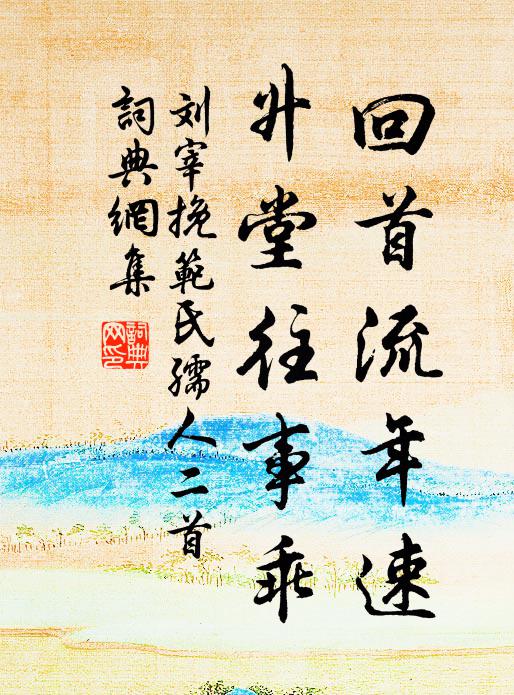 回首流年速
升堂往事乖
刘宰挽範氏孺人二首
詞典網集
詞典网印